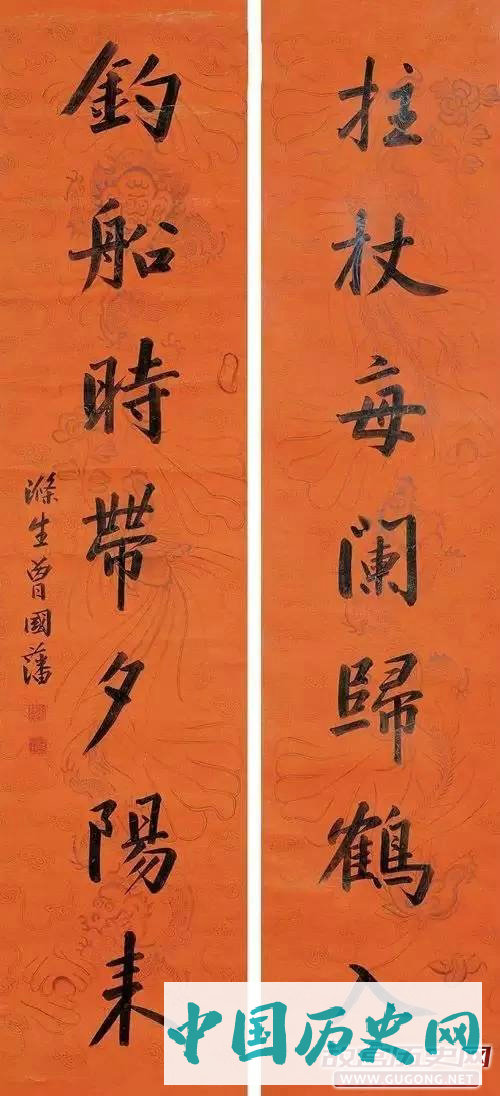 拄杖每闌歸鶴入
釣船時帶夕陽来
滌生曾國藩
中国历史网
故宫历史网
WWW.GUGONG.NET